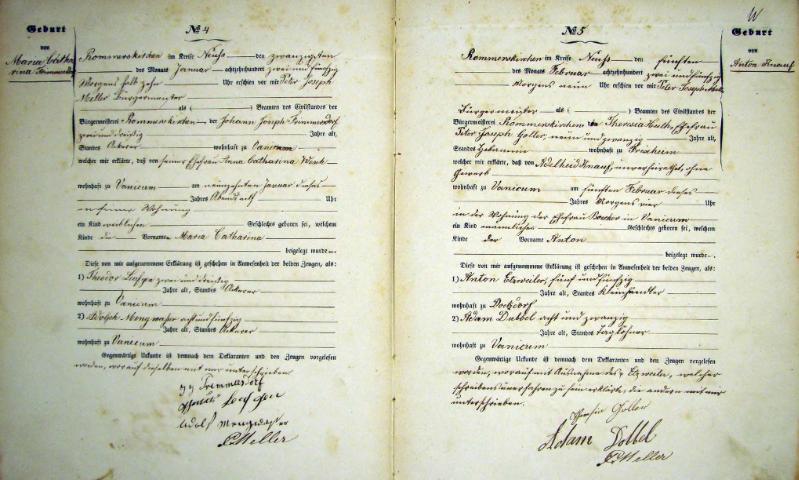 Geburt
von
Maria Catha
rina
№ 4
Rommerskirchen im Kreise Neuss den zwanzigsten
des Monats Januar achtzehnhundert zwei und fünfzig
Morgens halb zehn Uhr erschien vor mir Peter Joseph
Meller Bürgermeister
als Beamten des Civilstandes der
Bürgermeisterei Rommerskirchen der Johann Joseph
zwei und dreißig Jahre alt,
Standes Ackerer wohnhaft zu Vanicum
welcher mir erklärte, daß von seiner Ehefrau Anna Catharina
wohnhaft zu Vanicum am neunzehnten Januar dieses
Jahres Abends acht Uhr
in seiner Wohnung
ein Kind weiblichen Geschlechtes geboren sei, welchem
Kinde die Vorname Maria Catharina
beigelegt wurde.
Diese von mir aufgenommene Erklärung ist geschehen in Anwesenheit der beiden Zeugen, als:
1) Theodor zwei und dreißig
Jahre alt, Standes Ackerer
wohnhaft zu Vanicum
2) Adolph Mengwasser acht und fünfzig
Jahre alt, Standes Ackerer
wohnhaft zu Vanicum
Gegenwärtige Urkunde ist demnach dem Deklaranten und den Zeugen vorgelesen
worden, worauf dieselben mit mir unterschrieben
Adolf Mengwasser
Meller
№ 5
Geburt
von
Anton Knauf
Rommerskirchen im Kreise Neuss den fünften
des Monats Februar achtzehnhundert zwei und fünfzig
Morgens neun Uhr erschien vor mir Peter Joseph Meller
Bürgermeister als Beamten des Civilstandes der
Bürgermeisterei Rommerskirchen die Theresia Ehefrau
Peter Joseph Goller, neun und zwanzig Jahre alt,
Standes Hebamme wohnhaft zu Frixheim
welche mir erklärte, daß von Adelheid Knauf, unverheirathet, ohne
Gewerb
wohnhaft zu Vanicum am fünften Februar dieses
Jahres Morgens vier Uhr
in der Wohnung der Ehefrau in Vanicum
ein Kind männliches Geschlechtes geboren sei, welchem
Kinde der Vorname Anton
beigelegt wurde.
Diese von mir aufgenommene Erklärung ist geschehen in Anwesenheit der beiden Zeugen, als:
1) Anton Etzweiler, fünf und fünfzig
Jahre alt, Standes Kleinhändler
wohnhaft zu
2) Adam Dubbel acht und zwanzig
Jahre alt, Standes Taglöhner
wohnhaft zu Vanicum
Gegenwärtige Urkunde ist demnach dem Deklaranten und den Zeugen vorgelesen
worden, worauf mit Ausnahme des Etzweiler, welcher
schreibensunerfahren zu sein erklärte, die andern mit mir
unterschrieben.
Goller
Adam Dobbel
Meller